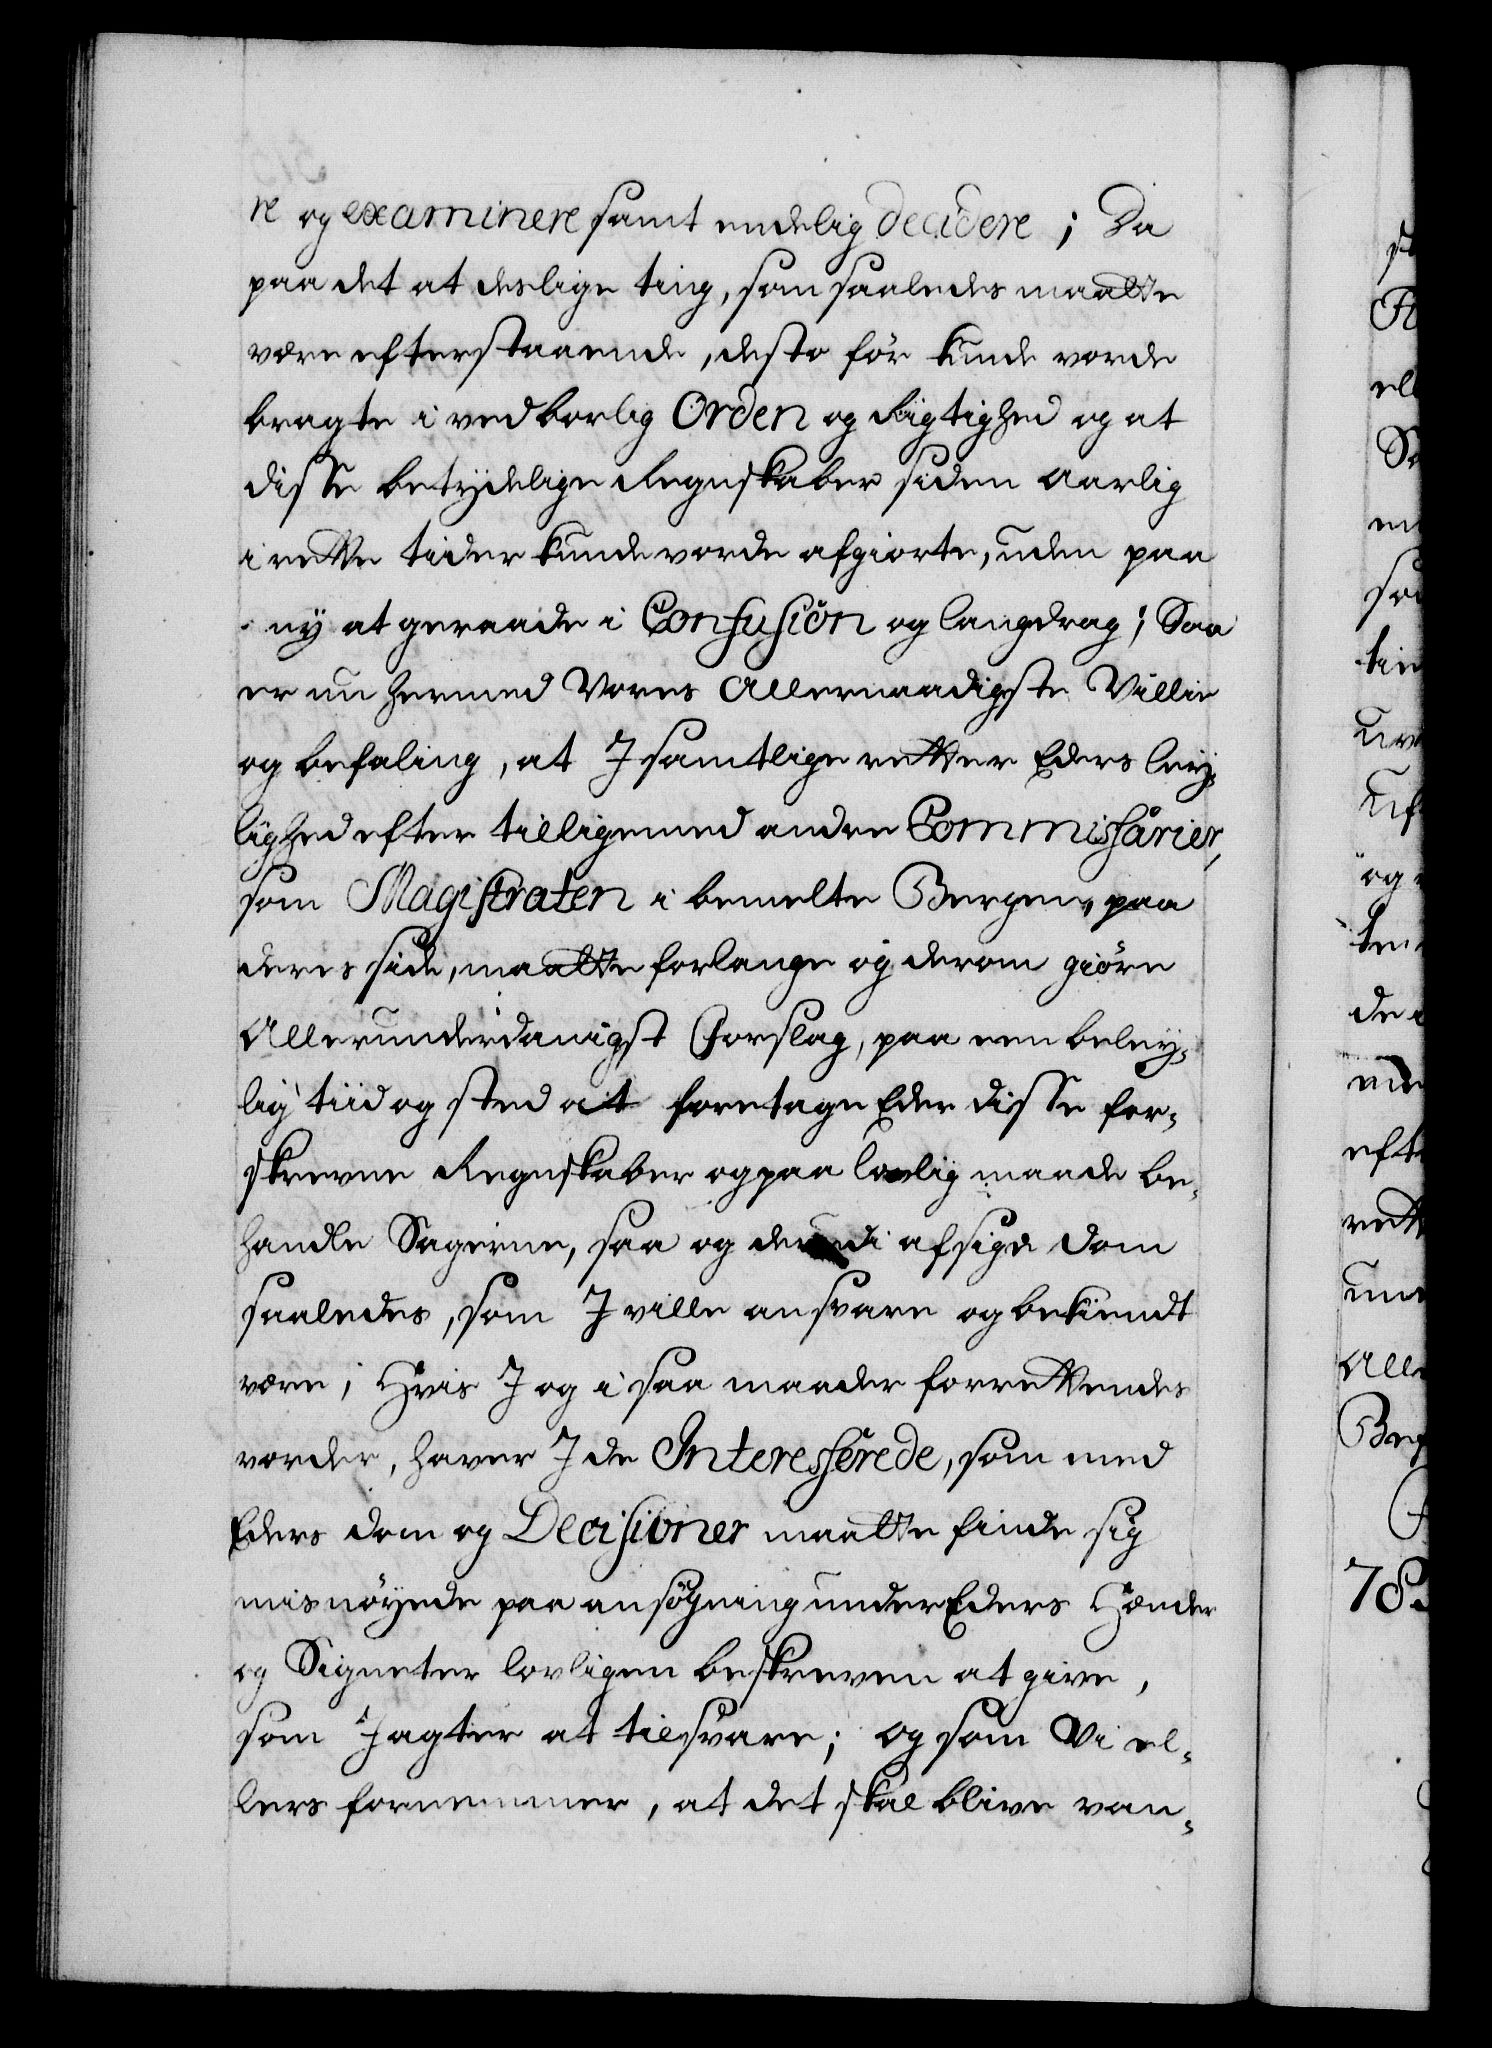 re og examinere samt endelig decidere; Da
paa det at deslige ting, som saaledes maatte
være efterstaaende, desto för kunde vorde
bragte i vedborlig Orden og Rigtighed og at
disse betydelige Regnskaber siden aarlig
i rette tider kunde vorde afgiorte, uden paa
ny at geraade i Confusion og langdrag; Saa
er nu hermed Vores Allernaadigste Villie
og befaling, at I samtlige retter Eders ley-
lighed efter tilligemed andre Commissarier,
som Magistraten i bemelte Bergen, paa
deres side, maatte forlange og derom giöre
Allerunderdanigst Forslag, paa een beley-
lig tiid og sted at foretage Eder disse for-
skrevne Regnskaber og paa lovlig maade be-
handle Sagerne, saa og derudi afsige dom
saaledes, som I ville ansvare og bekiendt
være; Hvis I og i saa maader forrettendes
vorder, haver I de Interesserede, som med
Eders dom og Decisioner maatte finde sig
misnöyede paa ansögning under Eders Hænder
og Signeter lovligen beskreven at give,
som I agter at tilsvare; og som Vi el-
lers fornemmer, at det skal blive van-